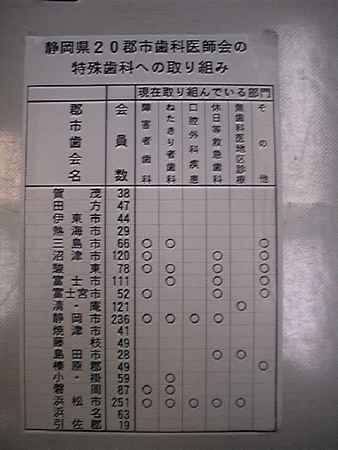 静岡県20郡市歯科医師会の
特殊歯科への取り組み
郡市歯会名 会員数 現在取り組んでいる部門
障害者歯科 ねたきり者歯科 口腔外科疾患 休日等救急歯科 無歯科医地区診療 その他
賀茂 38
田方 47
伊東市 44
熱海市 29
三島市 66 ○ ○ ○
沼津市 120 ○ ○ ○
駿東 78 ○ ○ ○ ○
富士市 111 ○ ○ ○
富士宮市 52 ○ ○ ○
清・庵 121 ○
静岡市 236 ○ ○ ○ ○
焼津市 41
藤枝 49
島田市 28 ○ ○
榛原郡 49 ○
小・掛 59 ○
磐周 87 ○ ○
浜松市 251 ○ ○ ○ ○ ○ ○
浜名 63
引佐郡 19